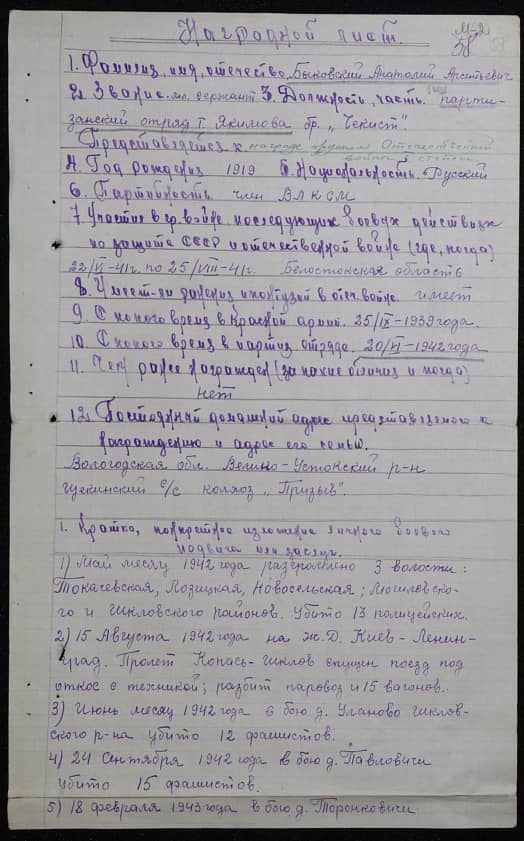 М-2
58
Наградной лист.
1. Фамилия, имя, отечество Быковский Анатолий Арситьевич
2. Звание мл. сержант 3. Должность, часть парти-
занский отряд т. Якимова бр. „Чекист".
Представляется к награде орденом Отечественной
войны степени
4. Год рождения 1919 5. Национальность Русский
6. Партийность член ВЛКСМ
7. Участие в гр. войне последующих боевых действиях
по защите СССР и отечественной войне (где, когда)
22/VI-41г. по 25/VIII-41г. Белостокская область
8. Имеет-ли ранения и контузий в отеч. войне имеет
9. С какого время в Красной армий. 25/IX-1939 года.
10. С какого время в партиз. отряде. 20/VI-1942 года
11. Чем ранее награжден (за какие отличия и когда)
нет
12. Постоянный домашний адрес представляемого к
награждению и адрес его семьи.
Вологодская обл. Велико-Устюкский р-н
с/с колхоз „Призыв".
1. Кратко, конкретное изложение личного боевого
подвига или заслуг.
1) Май месяц 1942 года разгромлено 3 волости:
Токачевская, Лозицкая, Новосельская; Могилевско-
го и Шкловского районов. Убито 13 полицейских.
2) 15 Августа 1942 года на Ж.Д. Киев-Ленин-
град. Пролет Копысь-Шклов спущен поезд под
откос с техникой; разбит паровоз и 15 вагонов.
3) Июнь месяц 1942 года в бою д. Уланово Шклов-
ского р-на убито 12 фашистов.
4) 24 Сентября 1942 года в бою д. Павловичи
убито 15 фашистов.
5) 18 февраля 1943 года в бою д. Торонковичи